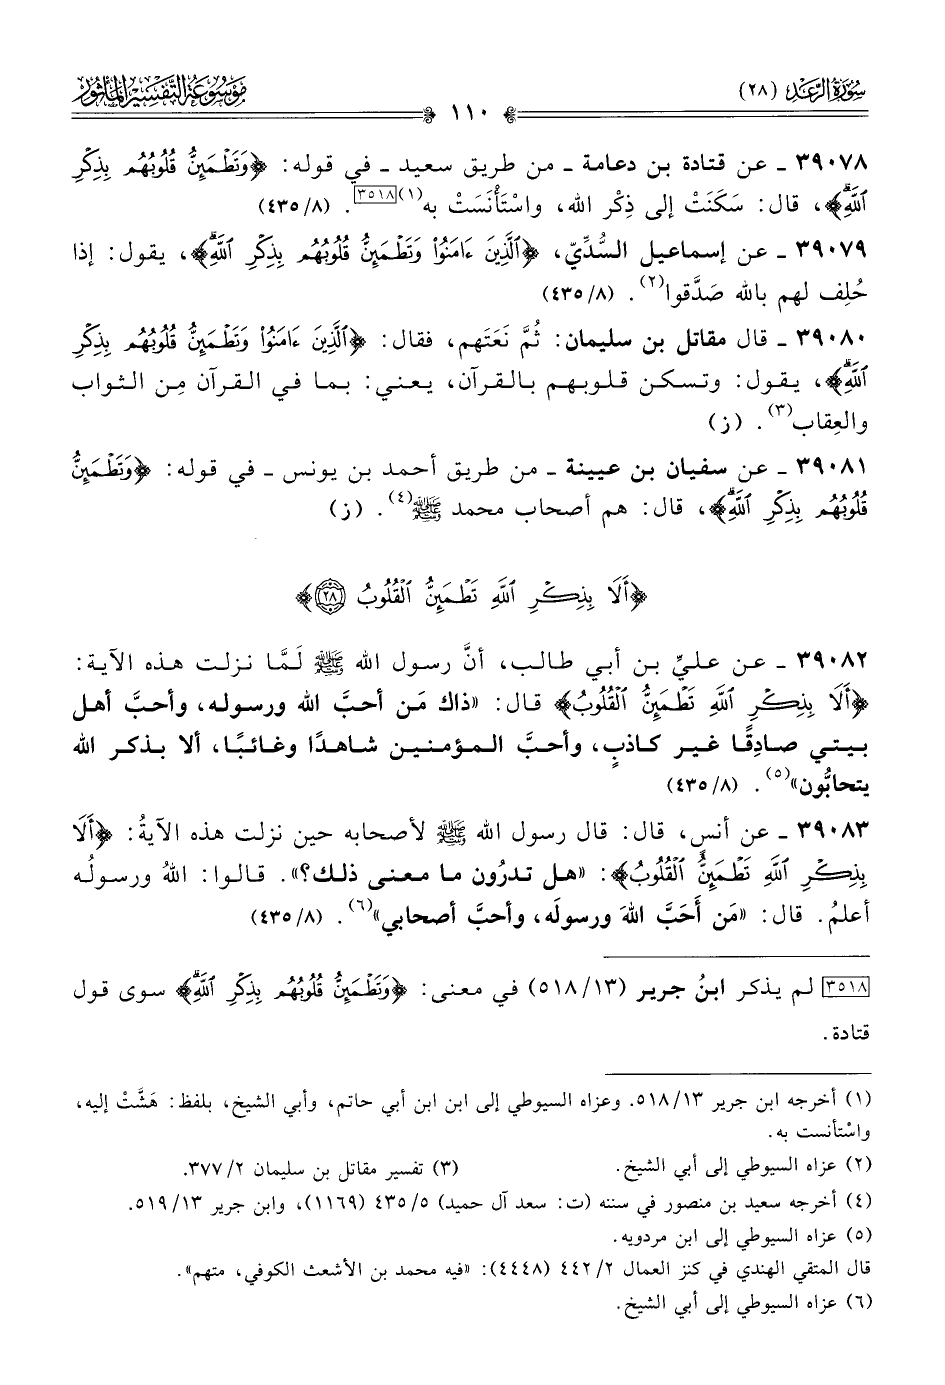 سُورَةُ الرَّعْدِ (٢٨)
مَوْسُوعَةُ التَّفْسِيرِ المَأْثُورِ
١١٠
٣٩٠٧٨ ـ عن قتادة بن دعامة ـ من طريق سعيد ـ في قوله: ﴿وَتَطْمَئِنُّ قُلُوبُهُم بِذِكْرِ
ٱللَّهِۗ﴾، قال: سَكَنَتْ إلى ذِكْر الله، واسْتَأْنَسَتْ به(١)[٣٥١٨]. (٨/ ٤٣٥)
٣٩٠٧٩ ـ عن إسماعيل السُّدِّيّ، ﴿ٱلَّذِينَ ءَامَنُوا۟ وَتَطْمَئِنُّ قُلُوبُهُم بِذِكْرِ ٱللَّهِۗ﴾، يقول: إذا
حُلِف لهم بالله صَدَّقوا(٢). (٨/ ٤٣٥)
٣٩٠٨٠ ـ قال مقاتل بن سليمان: ثُمَّ نَعَتَهم، فقال: ﴿ٱلَّذِينَ ءَامَنُوا۟ وَتَطْمَئِنُّ قُلُوبُهُم بِذِكْرِ
ٱللَّهِۗ﴾، يقول: وتسكن قلوبهم بالقرآن، يعني: بما في القرآن مِن الثواب
والعِقاب(٣). (ز)
٣٩٠٨١ ـ عن سفيان بن عيينة ـ من طريق أحمد بن يونس ـ في قوله: ﴿وَتَطْمَئِنُّ
قُلُوبُهُم بِذِكْرِ ٱللَّهِۗ﴾، قال: هم أصحاب محمد ﷺ(٤). (ز)
﴿أَلَا بِذِكْرِ ٱللَّهِ تَطْمَئِنُّ ٱلْقُلُوبُ ٢٨﴾
٣٩٠٨٢ ـ عن عليِّ بن أبي طالب، أنَّ رسول الله ﷺ لَمَّا نزلت هذه الآية:
﴿أَلَا بِذِكْرِ ٱللَّهِ تَطْمَئِنُّ ٱلْقُلُوبُ﴾ قال: «ذاك مَن أحبَّ الله ورسوله، وأحبَّ أهل
بيتي صادِقًا غير كاذبٍ، وأحبَّ المؤمنين شاهدًا وغائبًا، ألا بذكر الله
يتحابُّون»(٥). (٨/ ٤٣٥)
٣٩٠٨٣ ـ عن أنس، قال: قال رسول الله ﷺ لأصحابه حين نزلت هذه الآيةُ: ﴿أَلَا
بِذِكْرِ ٱللَّهِ تَطْمَئِنُّ ٱلْقُلُوبُ﴾: «هل تدرُون ما معنى ذلك؟». قالوا: اللهُ ورسولُه
أعلمُ. قال: «مَن أَحَبَّ اللهَ ورسولَه، وأحبَّ أصحابي»(٦). (٨/ ٤٣٥)
[٣٥١٨] لم يذكر ابنُ جرير (١٣/ ٥١٨) في معنى: ﴿وَتَطْمَئِنُّ قُلُوبُهُم بِذِكْرِ ٱللَّهِۗ﴾ سوى قول
قتادة.
(١) أخرجه ابن جرير ١٣/ ٥١٨. وعزاه السيوطي إلى ابن ابن أبي حاتم، وأبي الشيخ، بلفظ: هَشَّتْ إليه،
واسْتأنست به.
(٢) عزاه السيوطي إلى أبي الشيخ. (٣) تفسير مقاتل بن سليمان ٢/ ٣٧٧.
(٤) أخرجه سعيد بن منصور في سننه (ت: سعد آل حميد) ٥/ ٤٣٥ (١١٦٩)، وابن جرير ١٣/ ٥١٩.
(٥) عزاه السيوطي إلى ابن مردويه.
قال المتقي الهندي في كنز العمال ٢/ ٤٤٢ (٤٤٤٨): «فيه محمد بن الأشعث الكوفي، متهم».
(٦) عزاه السيوطي إلى أبي الشيخ.